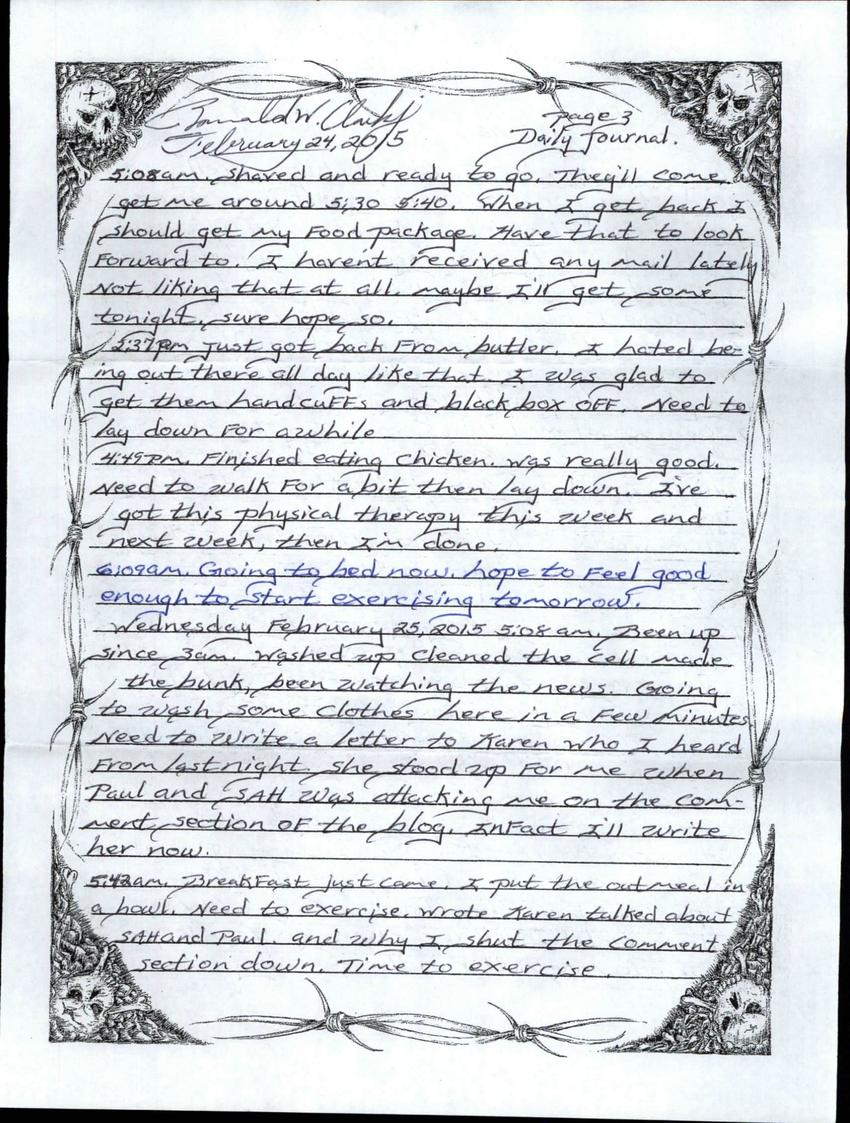 Ronald W. Clark Jr
page 3
February 24, 2015
Daily Journal.
5:08am. Shaved and ready to go. They'll come
get me around 5:30 5:40. When I get back I
should get my Food package. Have that to look
Forward to. I havent received any mail lately
Not liking that at all. maybe I'll get some
tonight, sure hope so.
2:37pm Just got back From butler. I hated be-
ing out there all day like that. I was glad to
get them handcuFFs and black box oFF. Need to
lay down For awhile
4:49pm. Finished eating Chicken. Was really good.
Need to walk For a bit then lay down. I've
got this physical therapy this week and
next week, then I'm done.
6:09am. Going to bed now. hope to Feel good
enough to start exercising tomorrow.
Wednesday February 25, 2015 5:08am. Been up
since 3am. Washed up Cleaned the cell made
the bunk, been watching the news. Going
to wash some Clothes here in a Few minutes
Need to write a letter to Karen who I heard
From last night. she stood up For me when
Paul and SAH was attacking me on the com-
ment section oF the blog. InFact I'll write
her now.
5:42am. BreakFast just came. I put the outmeal in
a bowl. Need to exercise. wrote Karen talked about
SAH and Paul. and why I shut the comment
section down. Time to exercise.